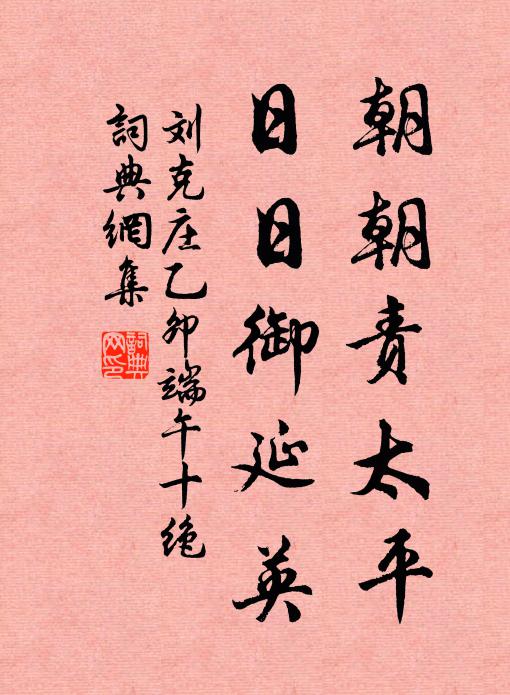 朝朝責太平
日日御延英
刘克庄乙卯端午十绝
詞典網集
詞典網印